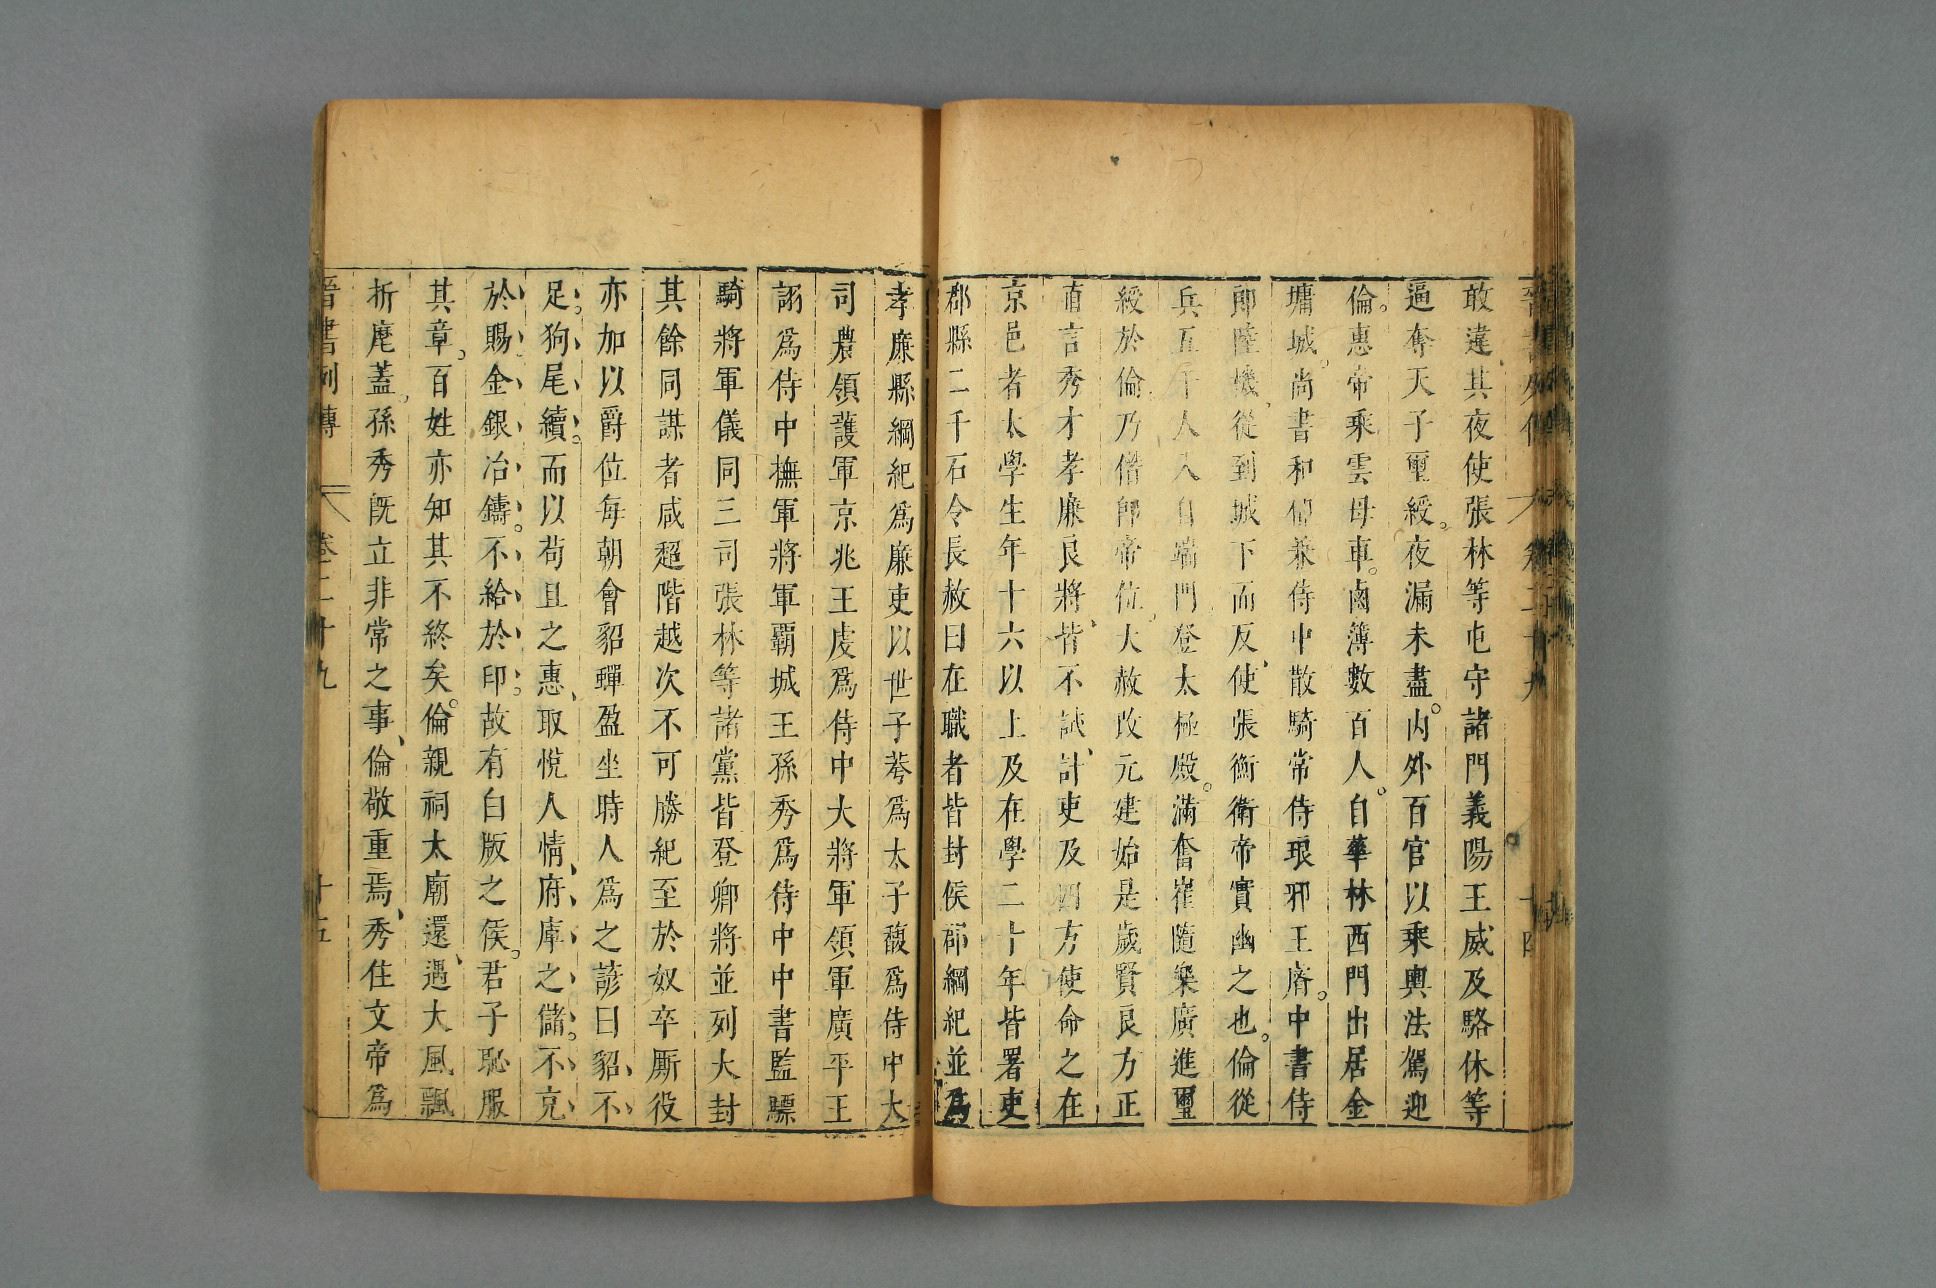 敢違其夜使張林等屯守諸門義陽王威及駱休等
逼奪天子璽綬。夜漏未盡。内外百官以乘輿法駕迎
倫。惠帝乘雲母車。鹵簿數百人。自華林西門出居金
墉城。尚書和郁兼侍中散騎常侍琅邪王睿。中書侍
郎陸機、從到城下而反、使張衡衛帝實幽之也。倫從
兵五千人入自端門登太極殿。滿奮崔隨樂廣進璽
綬於倫乃僭卽帝位、大赦改元建始是歲賢良方正
直言秀才孝廉良將、皆不試、計吏及四方使命之在
京邑者太學生年十六以上及在學二十年皆署吏
郡縣二千石令長赦日在職者皆封侯郡綱紀並爲
孝廉縣綱紀爲廉吏以世子荂爲太子馥爲侍中大
司農領護軍京兆王虔爲侍中大將軍領軍廣平王
詡爲侍中撫軍將軍霸城王孫秀爲侍中中書監驃
騎將軍儀同三司張林等諸黨皆登卿將並列大封
其餘同謀者咸超階越次不可勝紀至於奴卒厮役
亦加以爵位每朝會貂蟬盈坐時人爲之諺曰貂、不、
足。狗尾續。而以苟且之惠、取悅人情、府庫之儲。不充
於賜金銀冶鑄。不給於印。故有白版之侯。君子恥服
其章。百姓亦知其不終矣。倫親祠太廟還、遇大風飄
折麾蓋。孫秀既立非常之事、倫敬重焉、秀住文帝爲
晉書列傳 卷二十九 十五